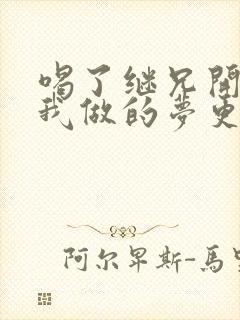 喝了继兄開
我做的夢更
阿尔卑斯-馬